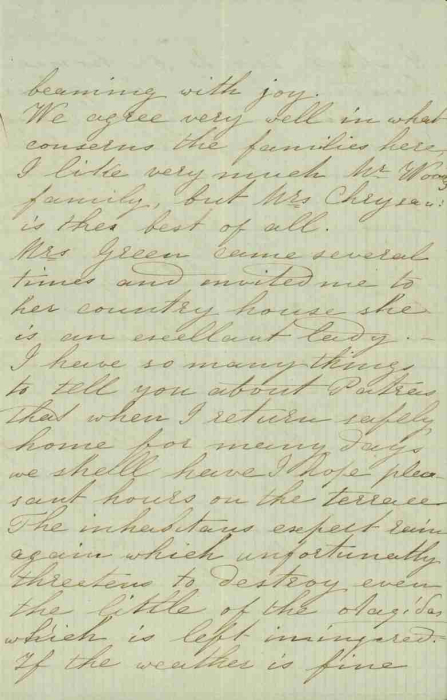 beaming with joy.
We agree very well in what
conserns the families here,
I like very much Mr Woods
family, but Mrs Chrysan:
is thes best of all.
Mrs Green came several
times and invited me to
her country house she
is an exellant lady. –
I have so many things
to tell you about Patras
that when I return safely
home for many days
we shell have I hope plea
sant hours on the terrace
The inhabitans expect rain
again which unfortunatly
threetens to destroy even
the little of the stagidas
which is left inningered. –
If the weather is fine